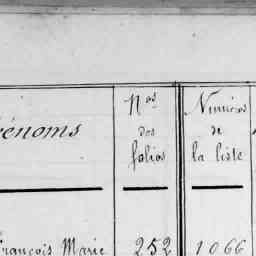 énoms
Nos
des
folios
Numéros
de
la liste
François Marie
252
1066